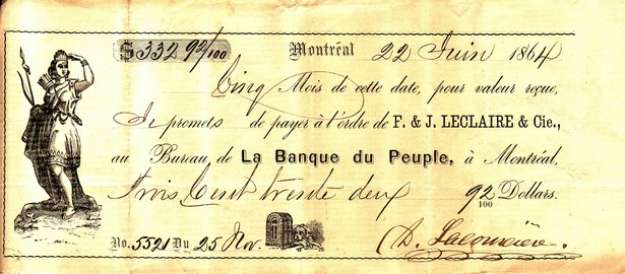 $ 332 92/100 Montréal 22 Juin 1864
Cinq Mois de cette date, pour valeur reçue,
Je promets de payer à l'ordre de F. & J. LECLAIRE & Cie.,
au Bureau de La Banque du Peuple, à Montréal,
Trois Cent trente deux 92/100 Dollars.
No. 5521 Du 25 Nov.